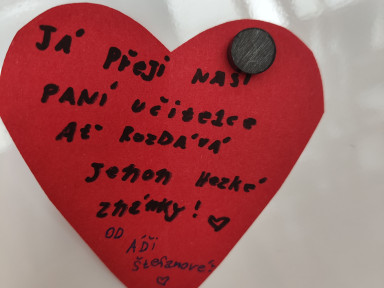 JÁ PŘEJI NAŠÍ
PANÍ UČITELCE
AŤ ROZDÁVÁ
JENOM HEZKÉ
ZNÁMKY! ♡
OD
ÁDI
ŠTEFANOVÉ
♡